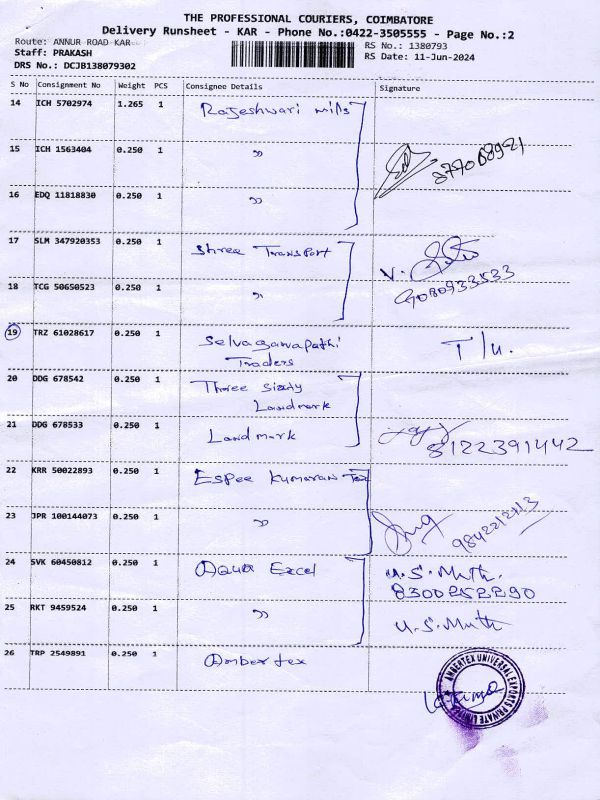 THE PROFESSIONAL COURIERS, COIMBATORE
Delivery Runsheet - KAR - Phone No.:0422-3505555 - Page No.:2
Route: ANNUR ROAD KAR
RS No.: 1380793
Staff: PRAKASH
RS Date: 11-Jun-2024
DRS No.: DCJB138079302
S No Consignment No Weight PCS Consignee Details Signature
14 ICH 5702974 1.265 1 Rajeshwari mills
15 ICH 1563404 0.250 1 "
16 EDQ 11818830 0.250 1 "
17 SLM 347920353 0.250 1 Shree Transport
18 TCG 50650523 0.250 1 " 9080933533
19 TRZ 61028617 0.250 1 Selvaganapathi T/u.
Traders
20 DDG 678542 0.250 1 Three Sixty
Landmark
21 DDG 678533 0.250 1 Landmark 8122391442
22 KRR 50022893 0.250 1 Espee Kumaran Tex
23 JPR 100144073 0.250 1 "
24 SVK 60450812 0.250 1 Aqua Excel U.S.Muth.
8300252290
25 RKT 9459524 0.250 1 " U.S.Muth
26 TRP 2549891 0.250 1 Ambertex
AMBERTEX UNIVERSAL EXPORTS PRIVATE LIMITED